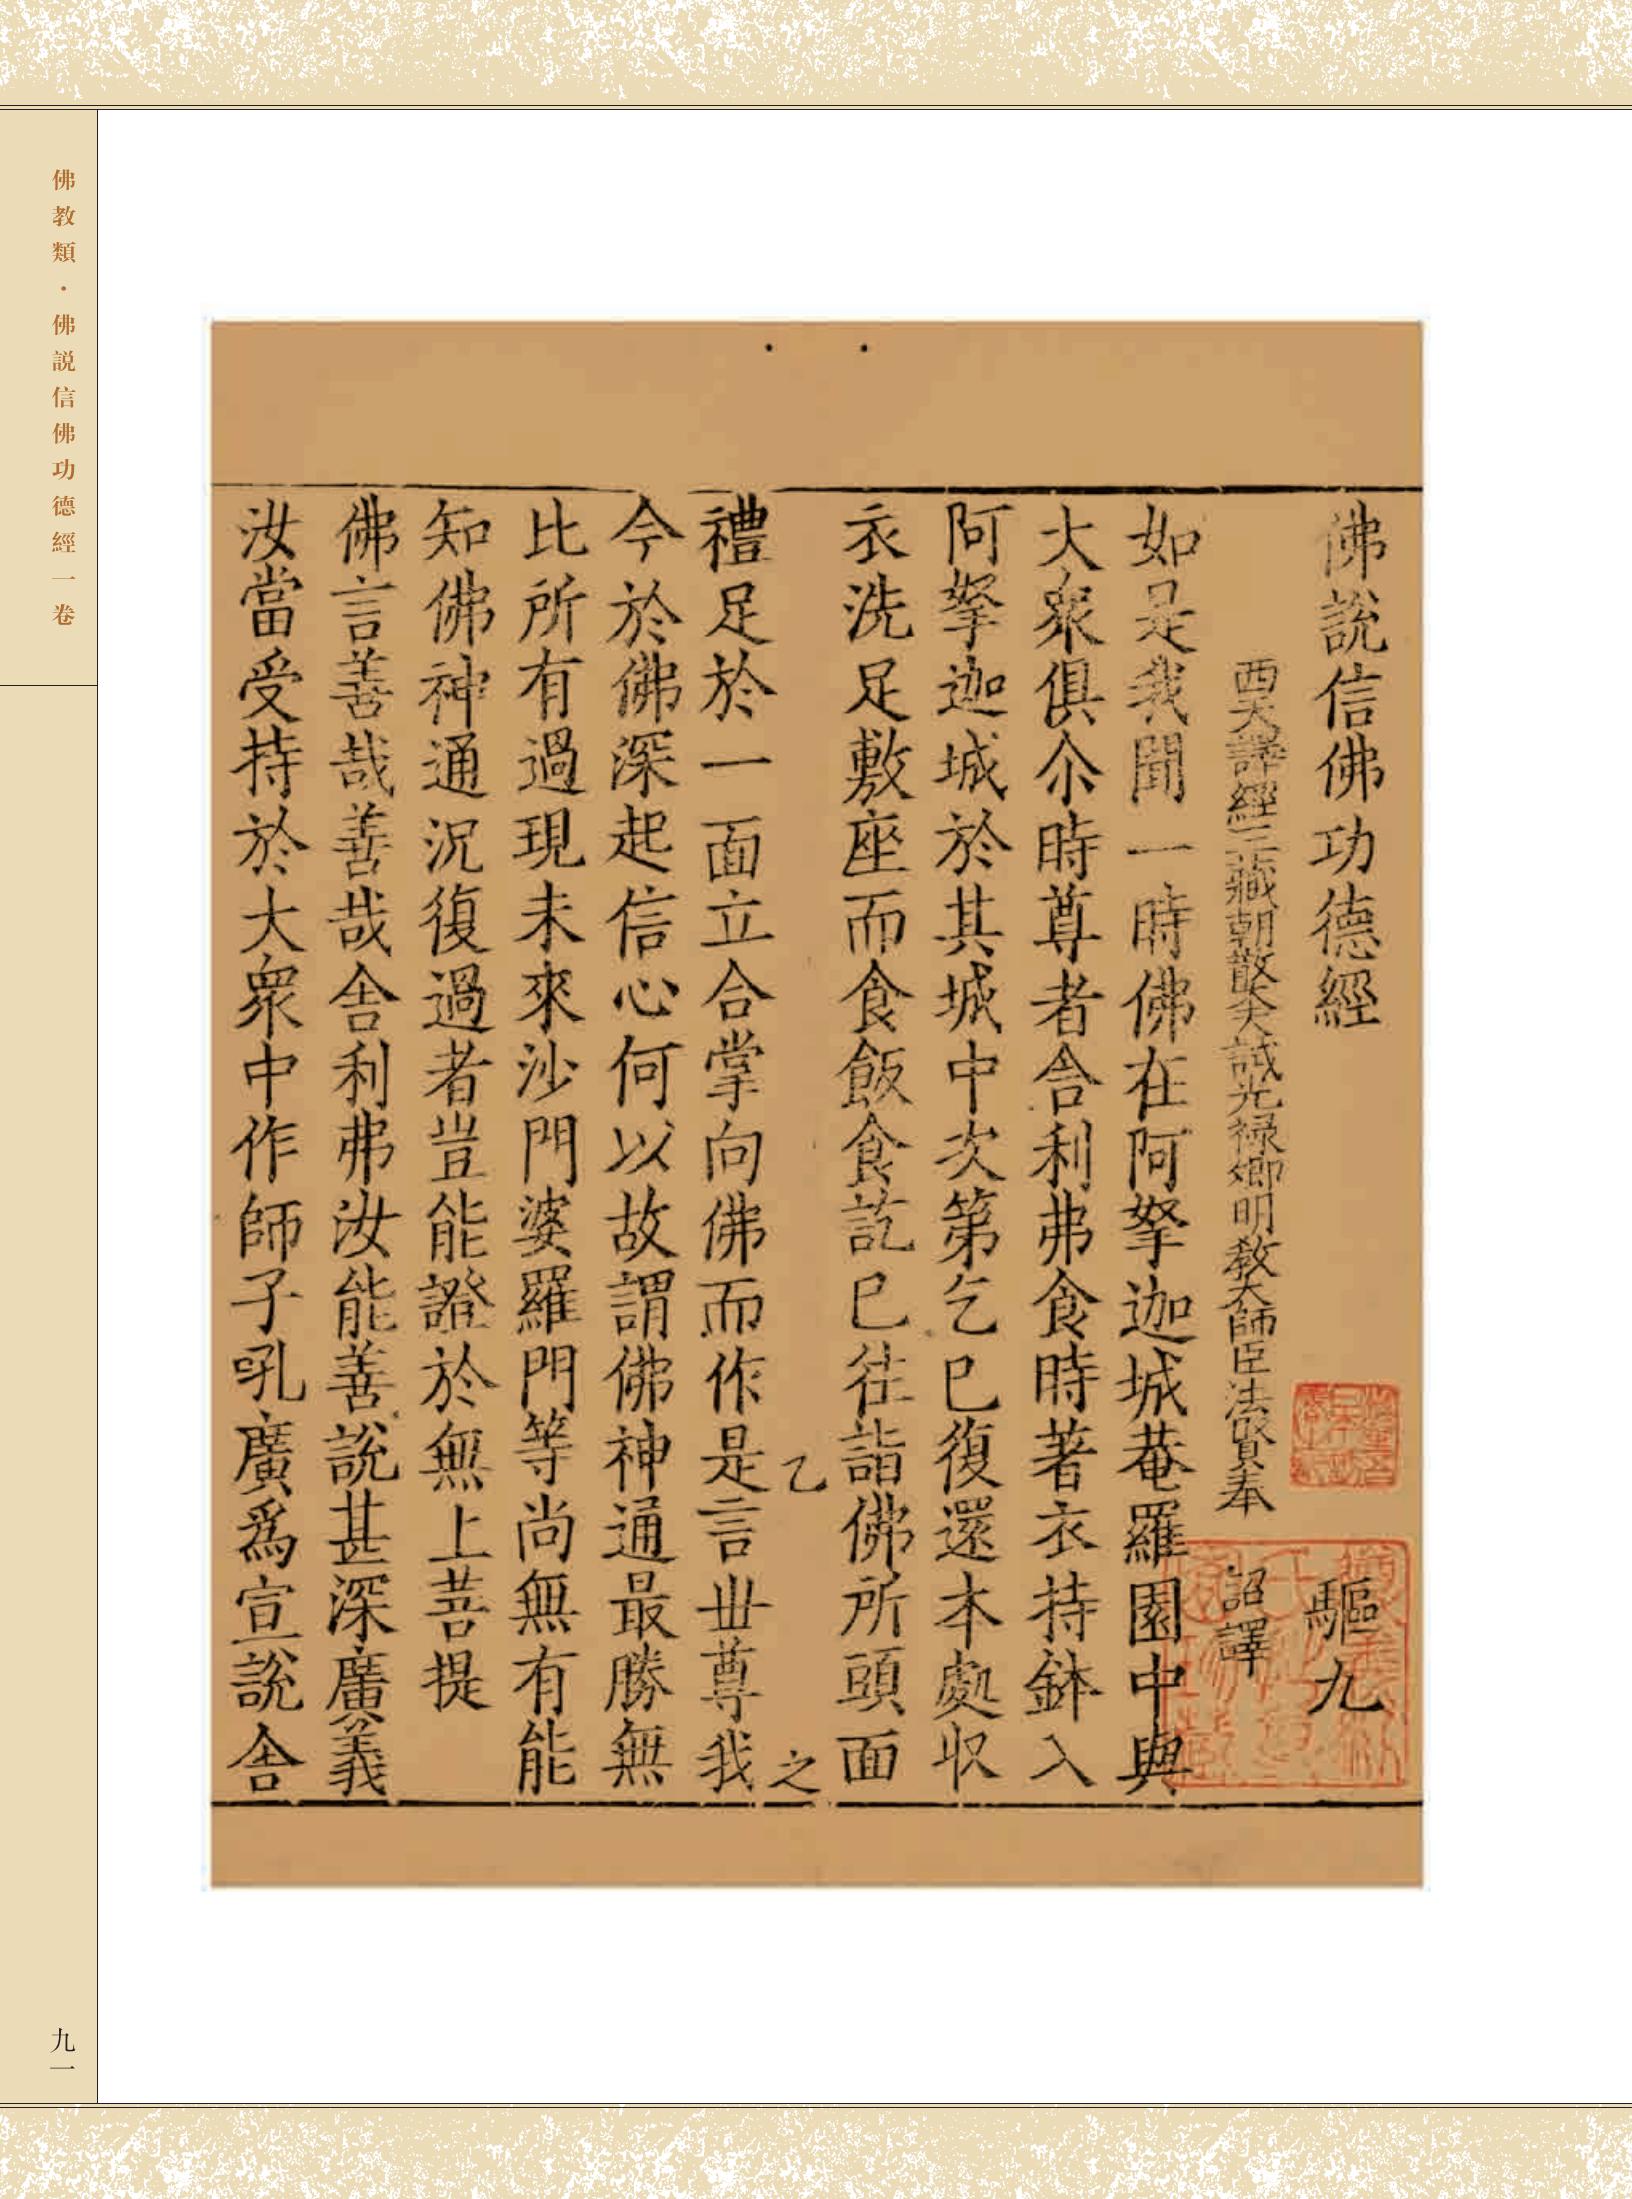 佛說信佛功德經 驅九
西天譯經三藏朝散大夫試光祿卿明教大師臣法賢奉 詔譯
如是我聞一時佛在阿拏迦城菴羅園中與
大衆俱尒時尊者舍利弗食時著衣持鉢入
阿拏迦城於其城中次第乞已復還本處收
衣洗足敷座而食飯食訖已往詣佛所頭面
乙 之
禮足於一面立合掌向佛而作是言丗尊我
今於佛深起信心何以故謂佛神通最勝無
比所有過現未來沙門婆羅門等尚無有能
知佛神通況復過者豈能證於無上菩提
佛言善哉善哉舍利弗汝能善說甚深廣義
汝當受持於大衆中作師子吼廣爲宣說舍
佛教類·佛説信佛功德經一卷
九一